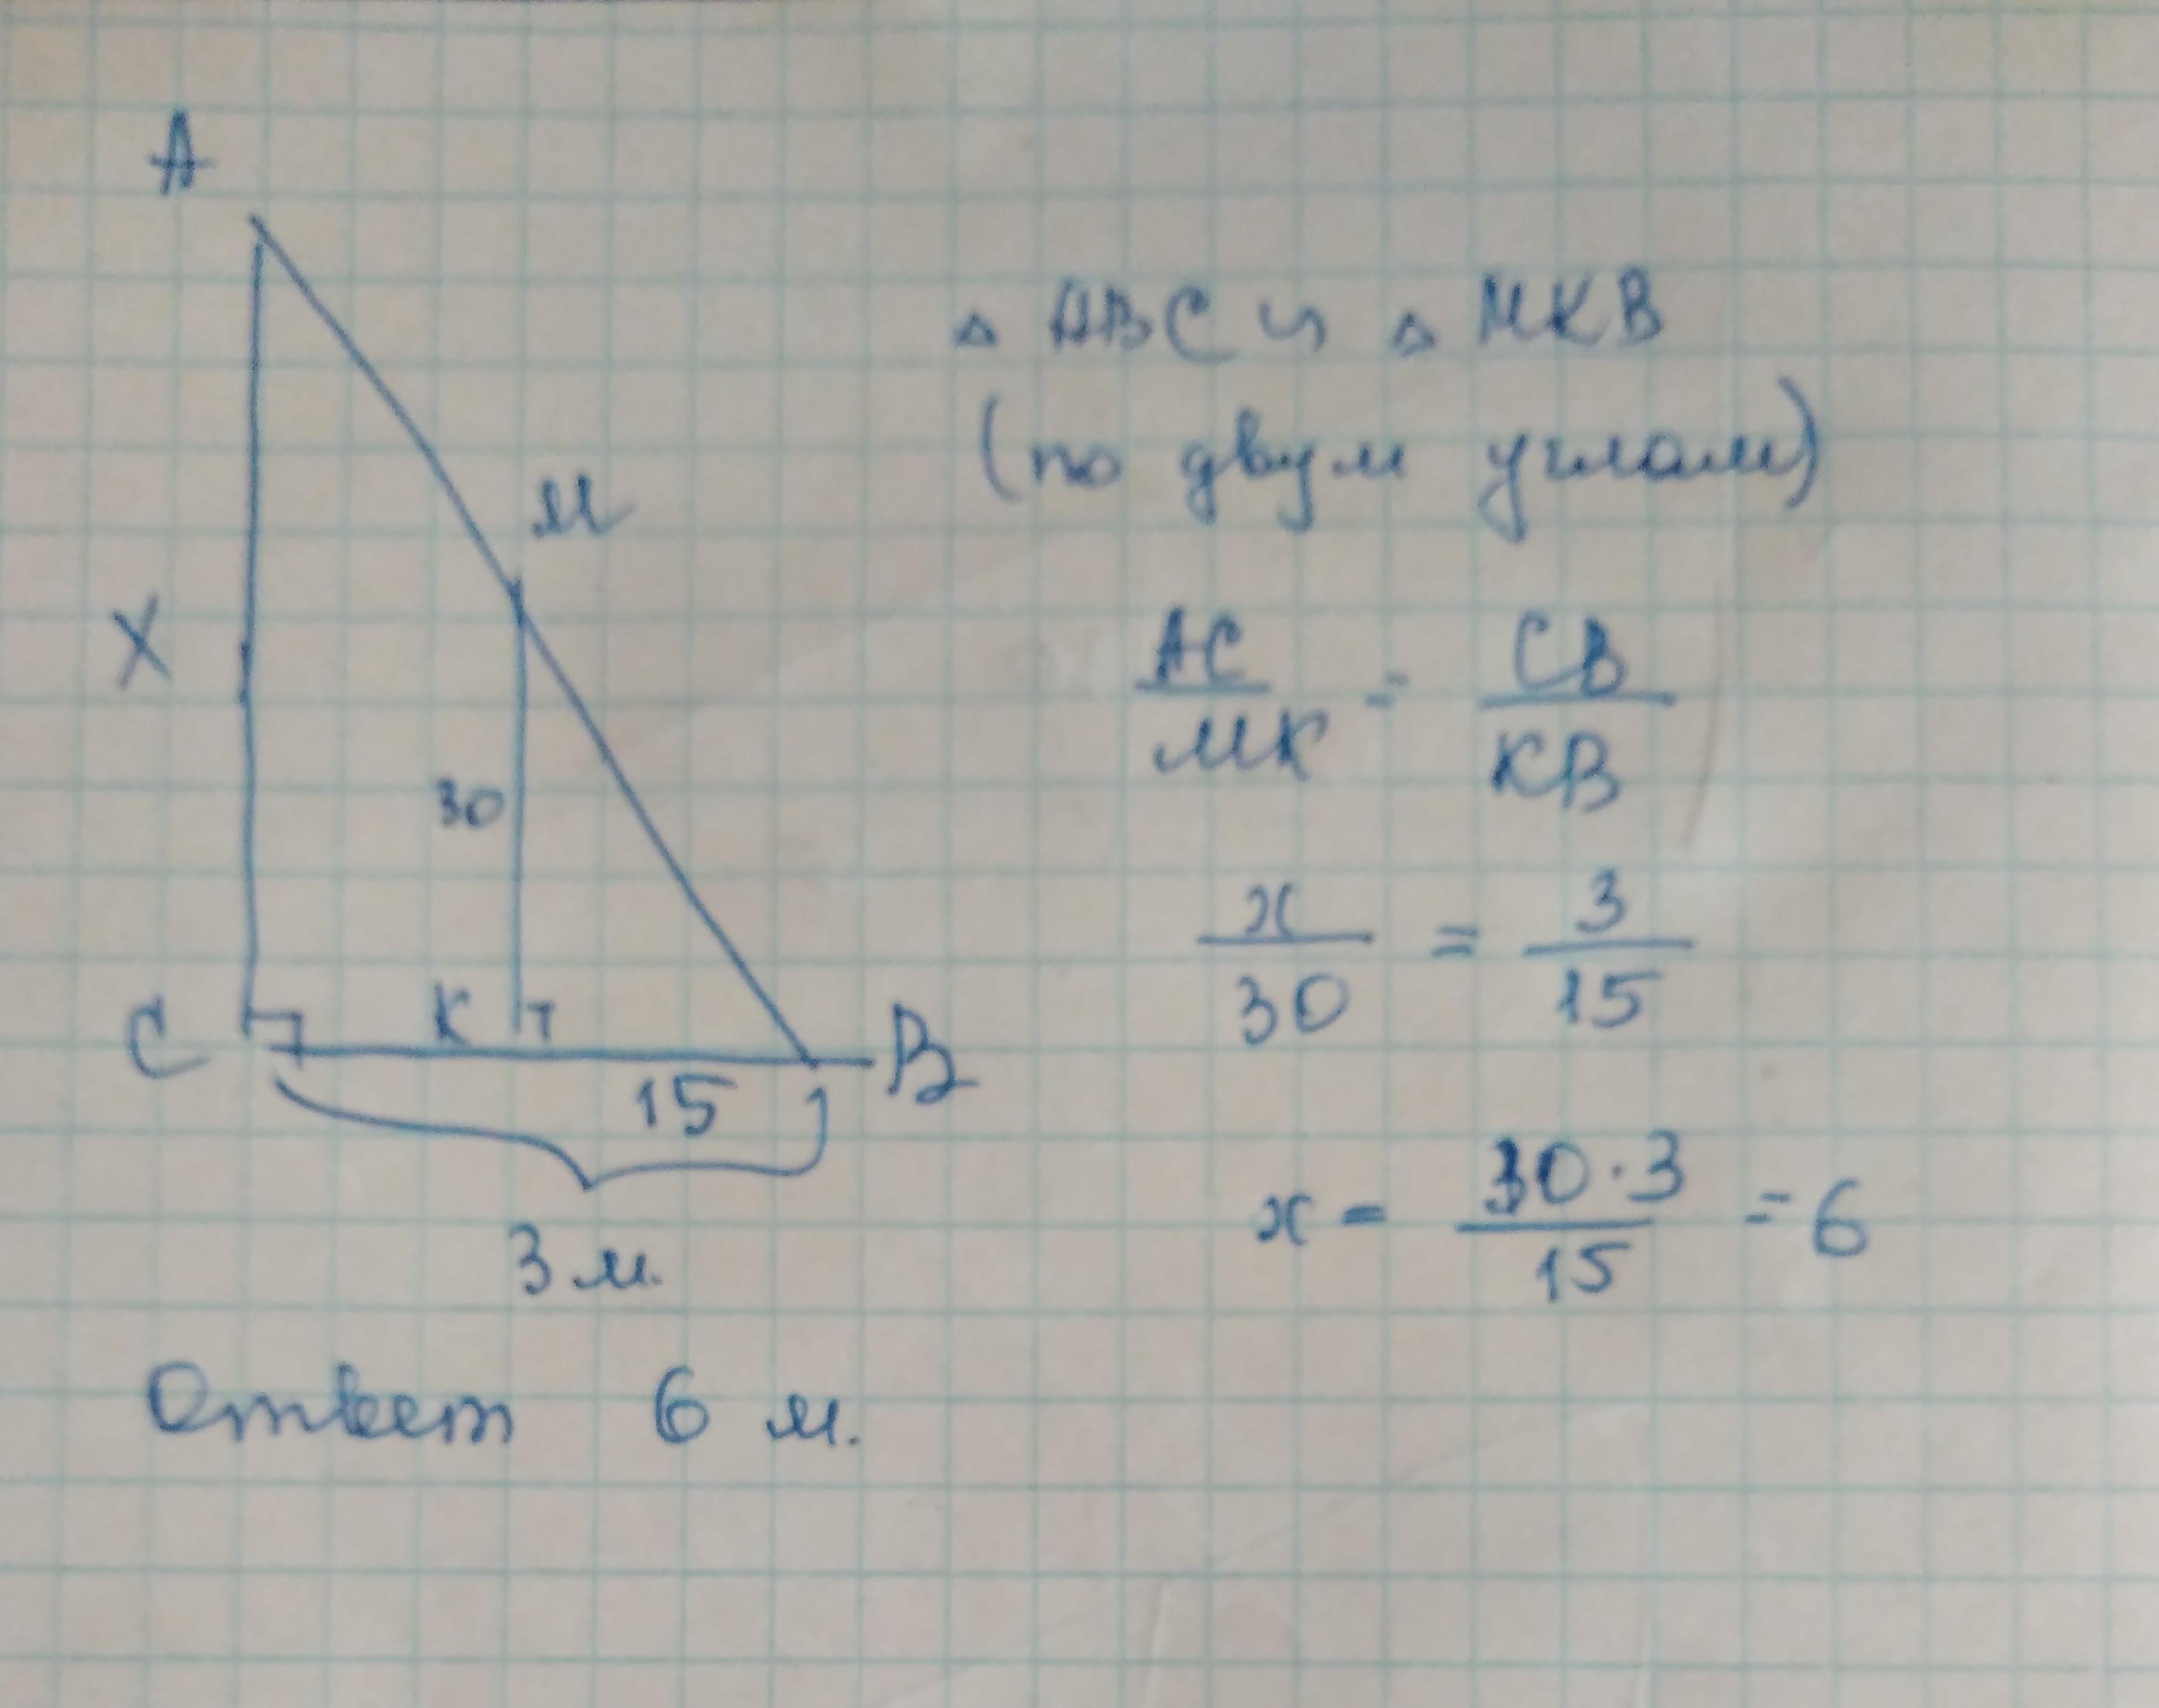 А
М
X
30
С
К
В
15
3 м.
△ ABC ∽ △ MKB
(по двум углам)
AC/MK = CB/KB
x/30 = 3/15
x = 30·3/15 = 6
Ответ 6 м.